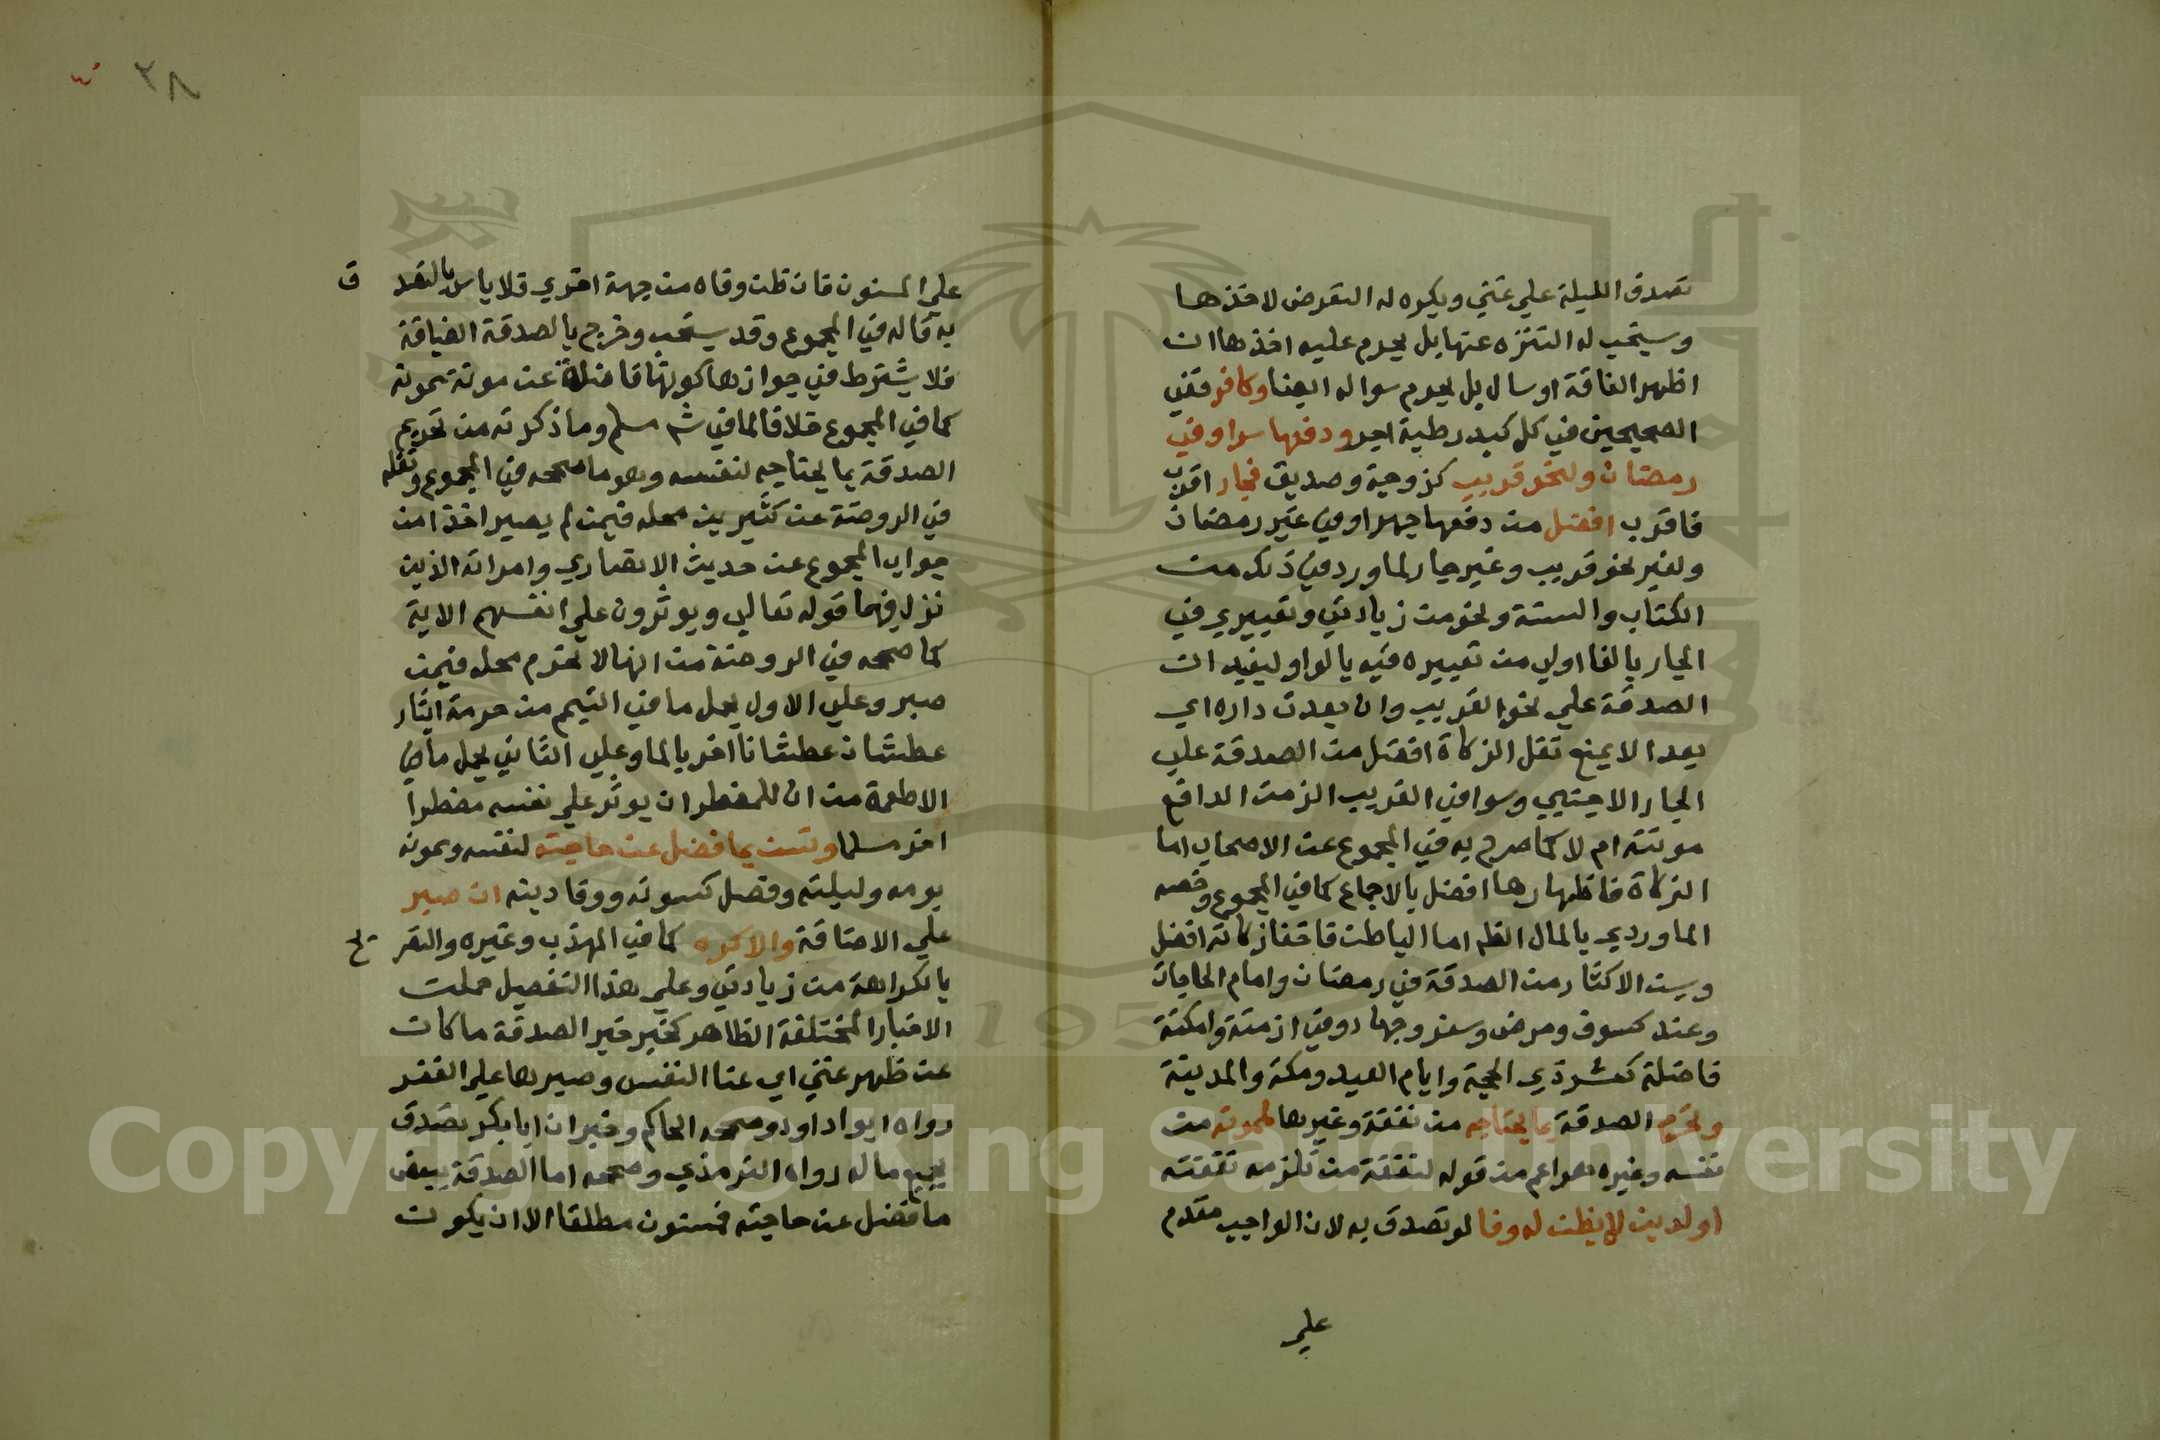 تصدق الليلة علي غني ويكره له التعرض لاخذها
ويستحب له التنزه عنها بل يحرم عليه اخذها ان
اظهر الفاقة او سال بل يحرم سواله ايضا وكافر ففي
الصحيحين في كل كبد رطبة اجر ودفعها سرا وفي
رمضان ولنحو قريب كزوجة وصديق فجار اقرب
فاقرب افضل من دفعها جهرا وفي غير رمضان
ولغير نحو قريب وغير جار لما ورد في ذلك من
الكتاب والسنة ونحو من زيادتي وتعبيري في
الجار بالفا اولي من تعبيره فيه بالواو ليفيد ان
الصدقة علي نحو القريب وان بعدت داره اي
بعدا لا يمنع نقل الزكاة افضل من الصدقة علي
الجار الاجنبي وسوا في القريب الزمت الدافع
مونته ام لا كما صرح به في المجموع عن الاصحاب اما
الزكاة فاظهارها افضل بالاجماع كما في المجموع وخصه
الماوردي بالمال الظاهر اما الباطن فاخفا زكاته افضل
ويسن الاكثار من الصدقة في رمضان وامام الحاجات
وعند كسوف ومرض وسفر وجهاد وفي ازمنة وامكنة
فاضلة كعشر ذي الحجة وايام العيد ومكة والمدينة
وتحرم الصدقة بما يحتاجه من نفقة وغيرها لممونه من
نفسه وغيره هو اعم من قوله لنفقة من تلزمه نفقته
او لدين لا يظن له وفا لو تصدق به لان الواجب مقدم
علي
٣٨
علي المسنون فان ظن وفاه من جهة اخري فلا باس بالتصد ق
به قاله في المجموع وقد يستحب وخرج بالصدقة الضيافة
فلا يشترط في جوازها كونها فاضلة عن مونة ممونه
كما في المجموع خلافا لما في ش مسلم وما ذكرته من تحريم
الصدقة بما يحتاجه لنفسه وهو ما صححه في المجموع ونقله
في الروضة عن كثيرين محله فيمن لم يصبر اخذا من
جواب المجموع عن حديث الانصاري وامراته الذين
نزل فيهما قوله تعالي ويوثرون علي انفسهم الاية
كما صححه في الروضة من انها لا تحرم محله فيمن
صبر وعلي الاول يحمل ما في التيمم من حرمة ايثار
عطشان عطشانا اخر بالما وعلي الثاني يحمل ما في
الاطعمة من ان للمضطر ان يوثر علي نفسه مضطرا
اخر مسلما وتسن بما فضل عن حاجته لنفسه وممونه
يومه وليلته وفصل كسوته ووفا دينه ان صبر
علي الاضاقة والا كره كما في المهذب وغيره والتصر يح
بالكراهة من زيادتي وعلي هذا التفصيل حملت
الاخبار المختلفة الظاهر كخبر خير الصدقة ما كان
عن ظهر غني اي غنا النفس وصبرها علي الفقر
رواه ابو داود وصححه الحاكم وخبر ان ابا بكر تصدق
بجميع ماله رواه الترمذي وصححه اما الصدقة ببعض
ما فضل عن حاجته فمسنون مطلقا الا ان يكون
Copyright © King Saud University
195